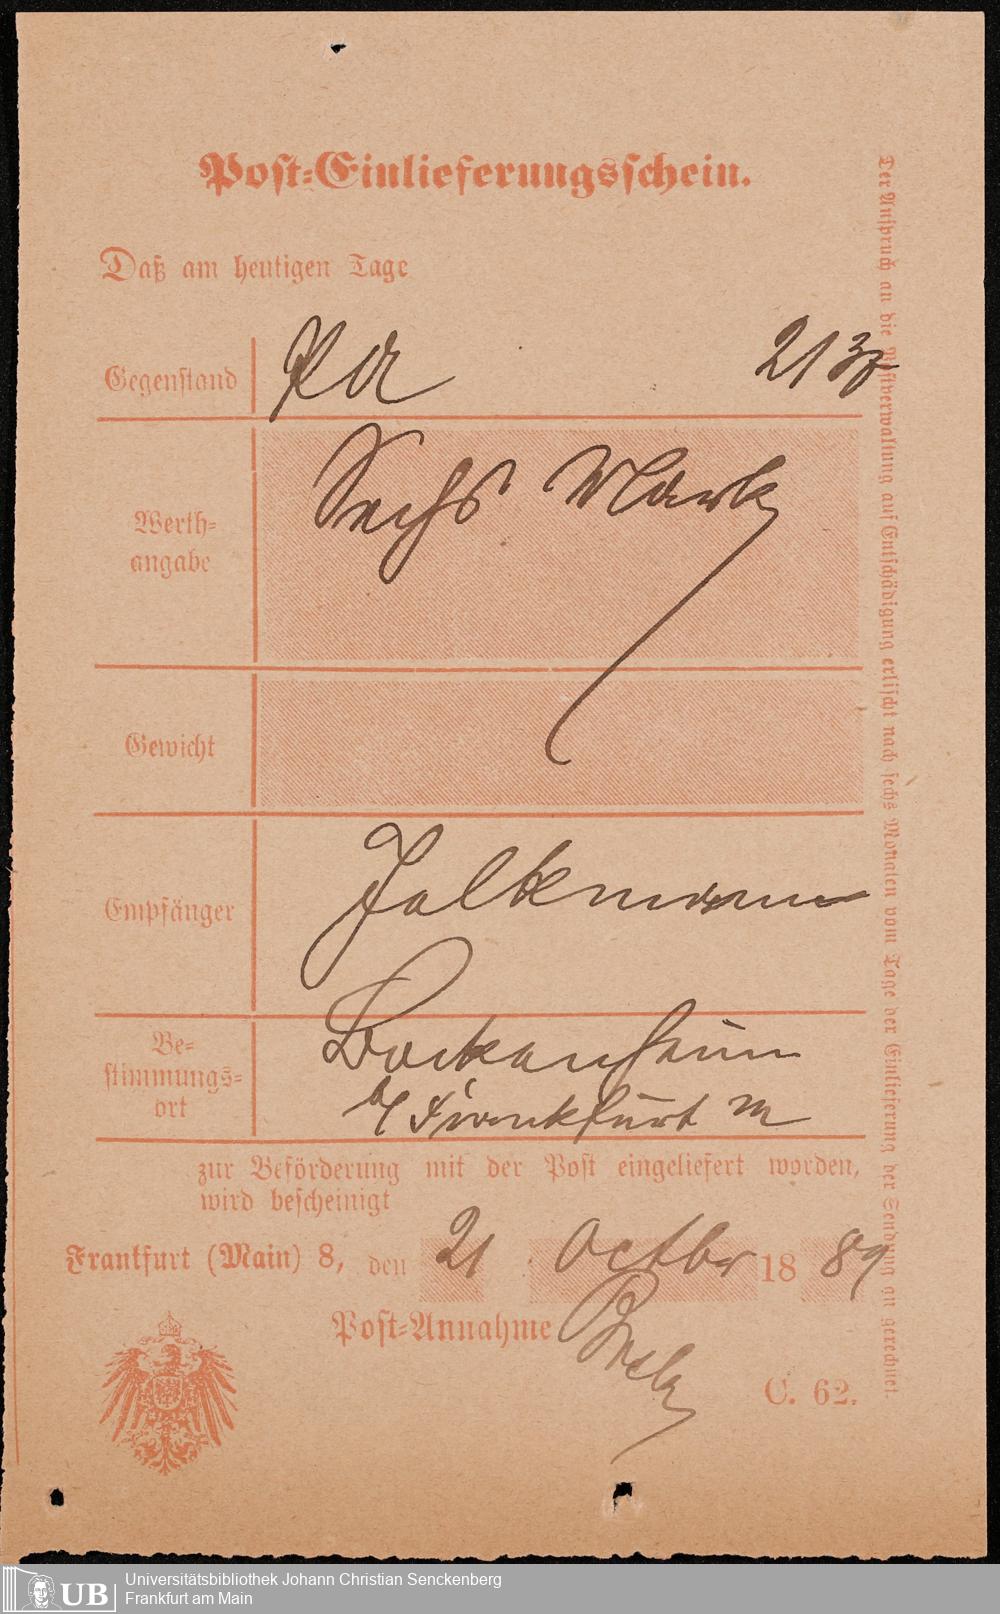 Post-Einlieferungsschein.
Daß am heutigen Tage
Gegenstand
Werth-
angabe
Sechs Mark
Gewicht
Empfänger
Falkmann
Be-
stimmungs-
ort
Bockenheim
b/ Frankfurt M
zur Beförderung mit der Post eingeliefert worden,
wird bescheinigt
Frankfurt (Main) 8, den 21 Octbr 1889
Post-Annahme
C. 62.
Der Anspruch an die Postverwaltung auf Entschädigung erlischt nach sechs Monaten vom Tage der Einlieferung der Sendung an gerechnet.
UB
Universitätsbibliothek Johann Christian Senckenberg
Frankfurt am Main